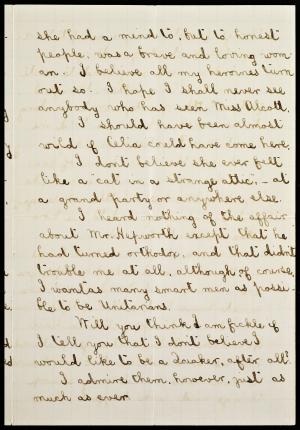 she had a mind to, but to honest
people, was a brave and loving wom-
an. I believe all my heroines turn
out so. I hope I shall never see
anybody who has seen Miss Alcott.
I should have been almost
wild if Celia could have come here.
I don't believe she ever felt
like a "cat in a strange attic", - at
a grand party or anywhere else.
I heard nothing of the affair
about Mr. Hepworth except that he
had turned orthodox, and that didn't
trouble me at all, although of course,
I want as many smart men as possi-
ble to be Unitarians.
Will you think I am fickle if
I tell you that I don't believe I
would like to be a Quaker, after all?
I admire them, however, just as
much as ever